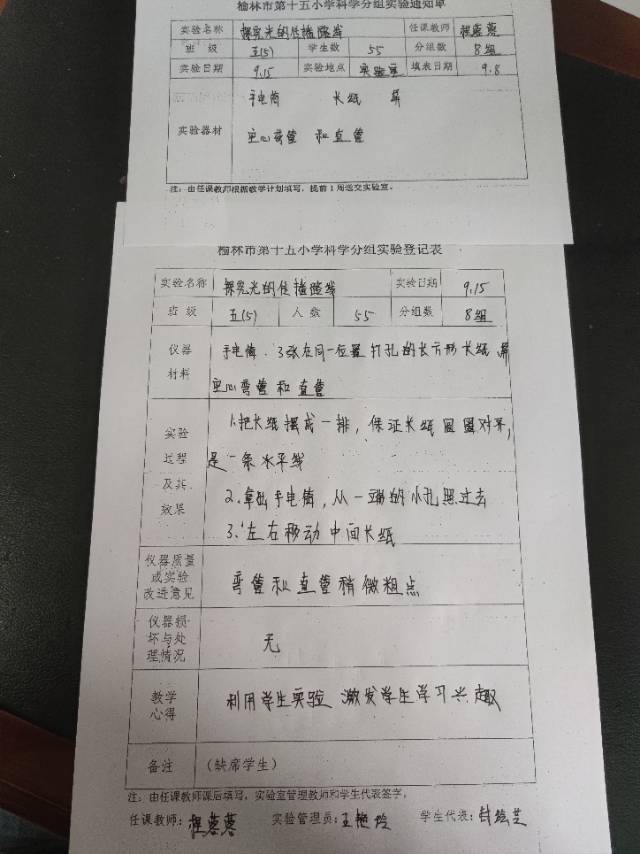 榆林市第十五小学科学分组实验通知单
实验名称 探究光的传播路线 任课教师
班 级 五(5) 学生数 55 分组数 8组
实验日期 9.15 实验地点 实验室 填表日期 9.8
手电筒 长纸 屏
实验器材 空心弯管 和直管
注:由任课教师根据教学计划填写,提前1周送交实验室。
榆林市第十五小学科学分组实验登记表
实验名称 探究光的传播路线 实验日期 9.15
班 级 五(5) 人 数 55 分组数 8组
仪器 手电筒.3张在同一位置打孔的长方形长纸 屏
材料 空心弯管和直管
实验 1.把长纸摆成一排,保证长纸圆圆对齐,
过程 是一条水平线
及其 2.拿出手电筒,从一端的小孔照过去
效果 3.左右移动中间长纸
仪器质量
或实验 弯管和直管稍微粗点
改进意见
仪器损
坏与处 无
理情况
教学 利用学生实验 激发学生学习兴趣
心得
备注 (缺席学生)
注:由任课教师课后填写,实验室管理教师和学生代表签字。
任课教师: 实验管理员: 学生代表: